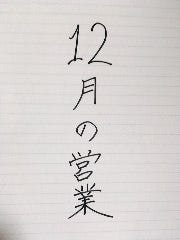 12月の営業